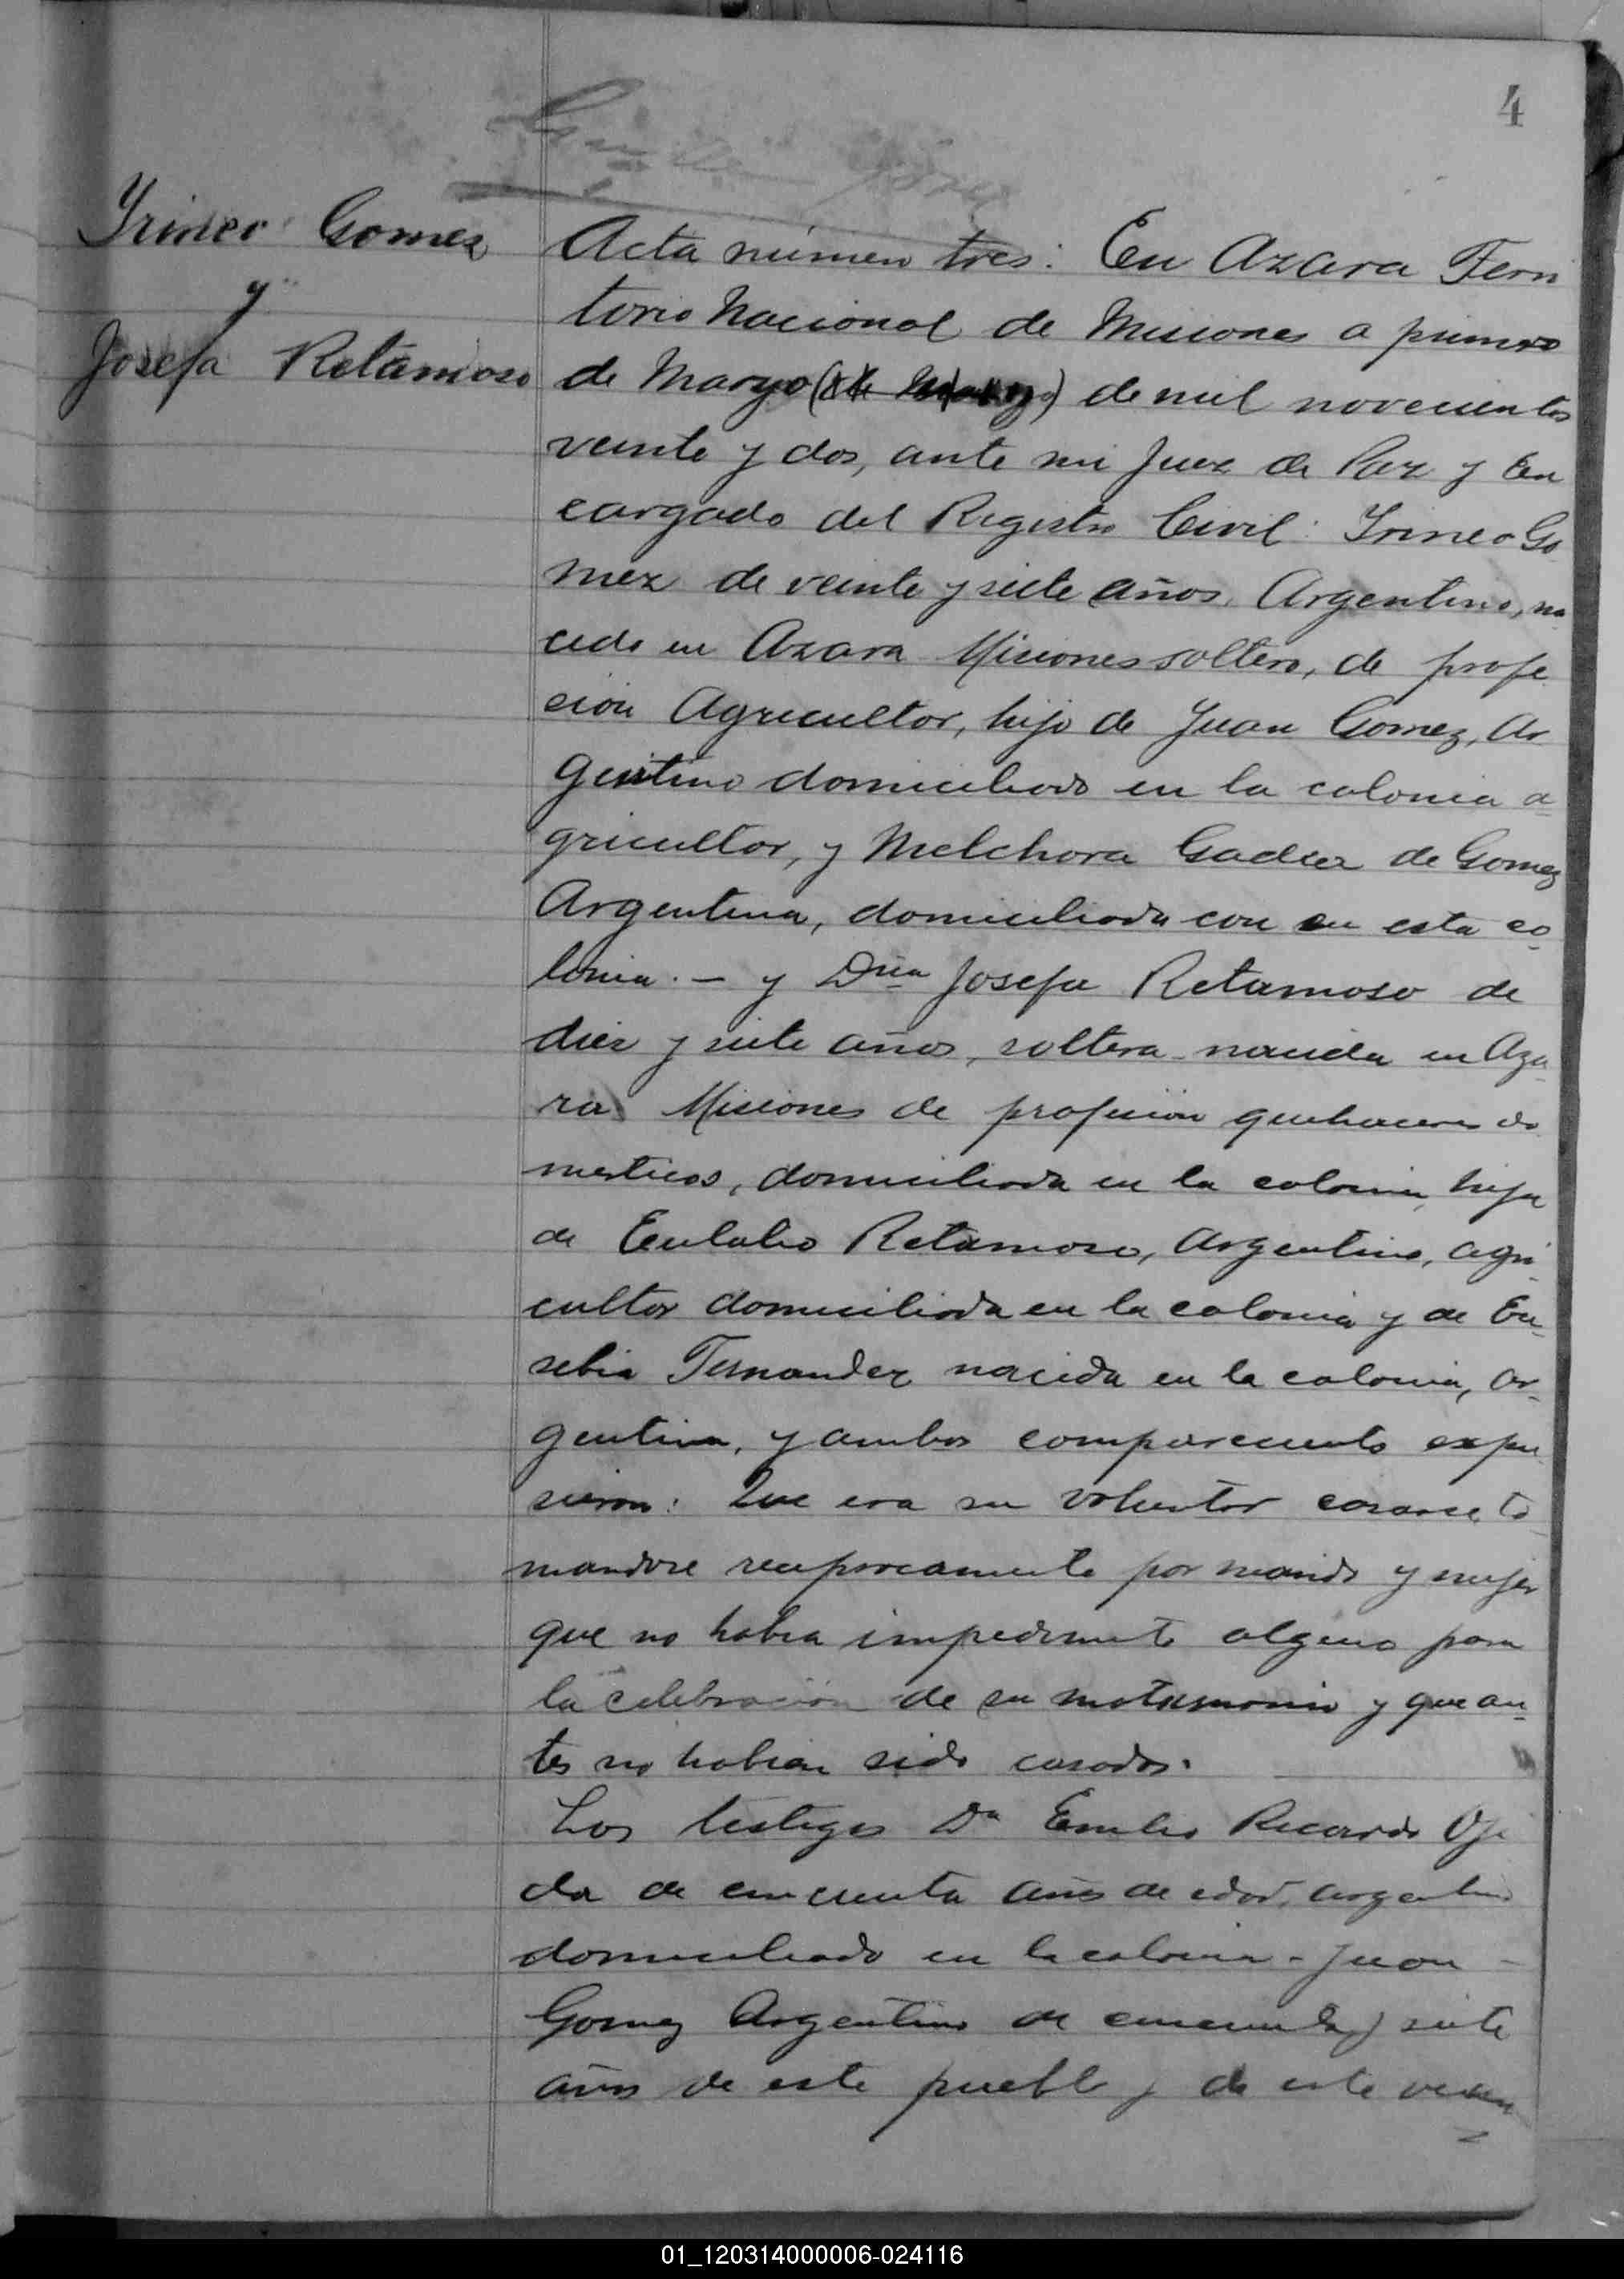 4
Yrineo Gomez
y
Josefa Retamoso
Acta número tres: En Azara Terri
torio Nacional de Misiones a primero
de Maryo de mil novecientos
veinte y dos, ante mi Juez de Paz y En
cargado del Registro Civil: Yrineo Go
mez de veinte y siete años, Argentino, na
cido en Azara Misiones soltero, de profe
cion Agricultor, hijo de Juan Gomez, Ar
gentino domiciliado en la colonia a
gricultor, y Melchora de Gomez
Argentina, domiciliada con en esta co
lonia. — y Dña Josefa Retamoso de
diez y siete años, soltera nacida en Aza
ra Misiones de profesion quehaceres do
mesticos, domiciliada en la colonia, hija
de Eulalio Retamoso, Argentino, agri
cultor domiciliada en la colonia y de Eu
sebia Fernandez nacida en la colonia, ar
gentina, y ambos compareciento expu
sieron: Que era su voluntad casarse, to
mandose reciprocamente por marido y mujer
que no habia impedimento alguno para
la celebracion de su matrimonio y que an
tes no habian sido casados.
Los testigos Dn Emilio Ricardo Oje
da de cincuenta años de edad, argentino
domiciliado en la colonia - Juan
Gomez Argentino de cincuenta y siete
años de este pueblo y de este
01_120314000006-024116